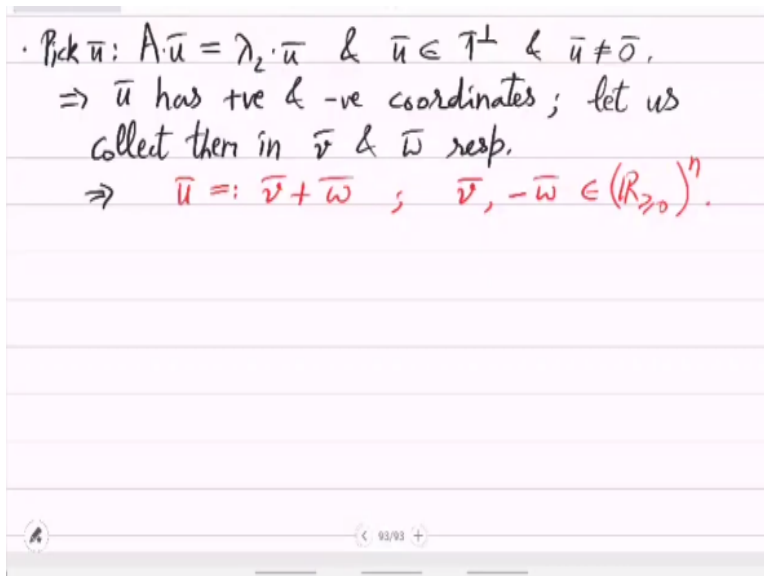 · Pick ū: A·ū = λ₂·ū & ū ∈ 1̄^⊥ & ū ≠ 0̄.
⇒ ū has +ve & -ve coordinates; let us
collect them in v̄ & w̄ resp.
⇒ ū =: v̄ + w̄ ; v̄, -w̄ ∈ (ℝ≥0)ⁿ.
93/93